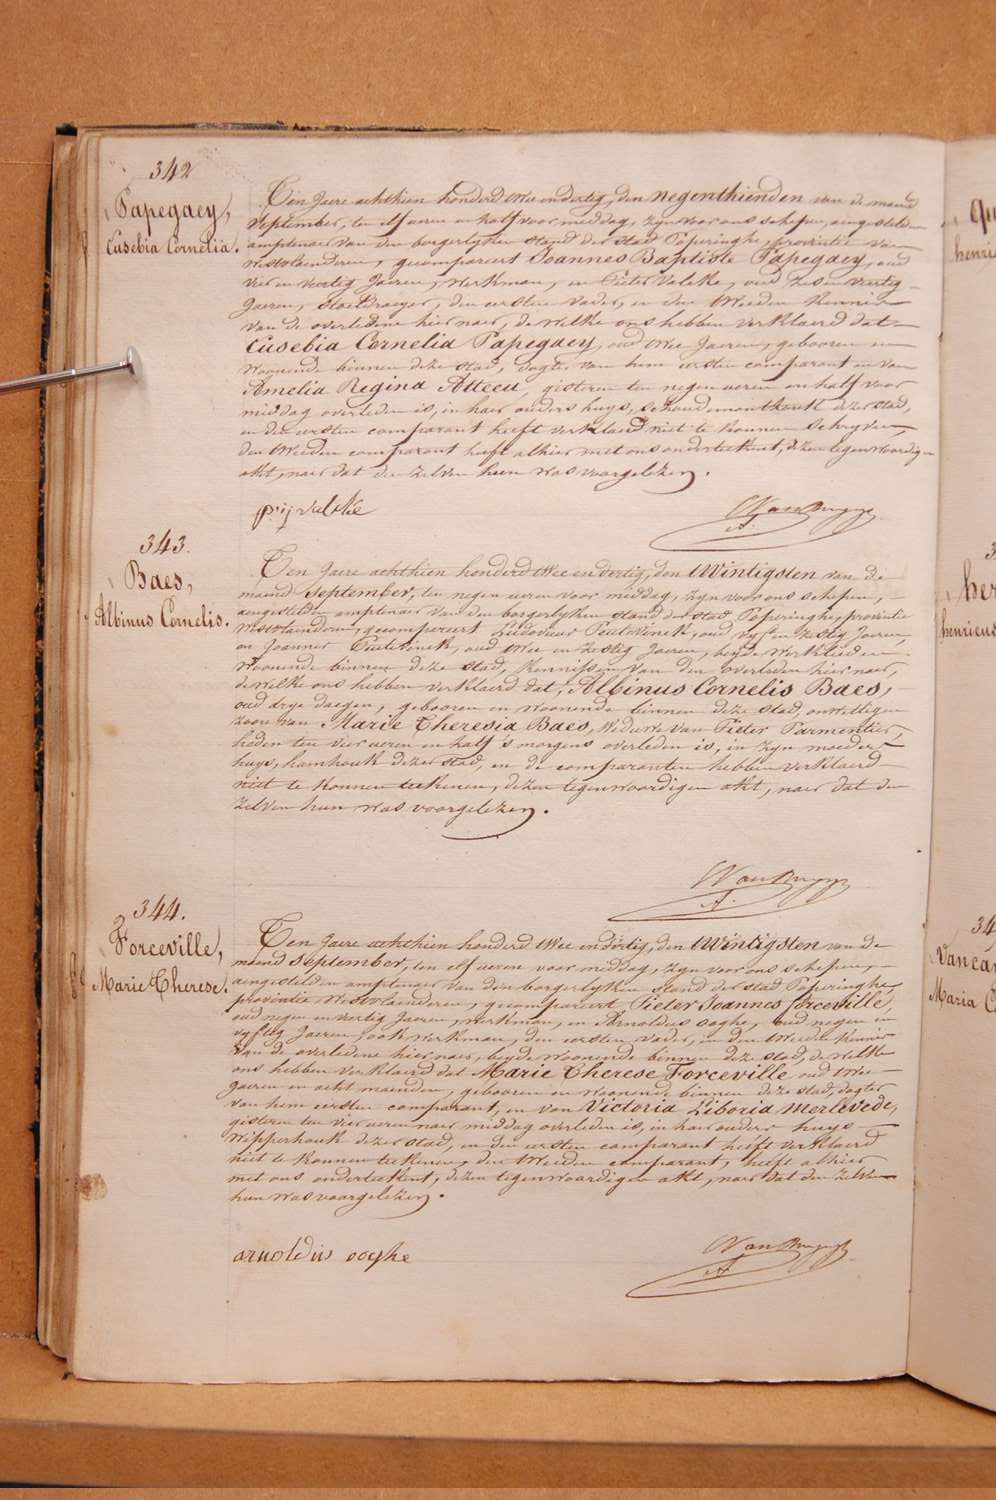 342
Papegaey,
Eusebia Cornelia.
Ten Jaere achthien honderd twee endertig, den negenthienden van de maend
September, ten elf ueren en half voor middag, zyn voor ons schepen, aengestelden
amptenaer van den borgerlyken stand der stad Poperinghe, provintie van
Westvlaenderen, gecompareert Joannes Baptiste Papegaey, oud
vier en veertig Jaeren, werkman, en Pieter Velcke, oud zes en veertig
Jaeren, den eersten vader, en den tweeden kennis
van de overledene hier naer, de welke ons hebben verklaerd dat
Eusebia Cornelia Papegaey, oud twee Jaeren, gebooren en
woonende binnen deze stad, dogter van hem eersten comparant en van
Amelia Regina Atteeu, gisteren ten negen ueren en half voor
middag overleden is, in haer ouders huys, schoudemonthouk dezer stad,
en den eersten comparant heeft verklaerd niet te konnen schryven,
den tweeden comparant heeft alhier met ons onderteekent, dezen tegenwoordigen
akt, naer dat den zelven hun was voorgelezen.
p:ij velcke
343.
Baes,
Albinus Cornelis.
Ten Jaere achthien honderd twee en dertig, den twintigsten van de
maend September, ten negen ueren voor middag, zyn voor ons schepen,
aengestelden amptenaer van den borgerlyken stand der stad Poperinghe, provintie
Westvlaenderen, gecompareert Ludovicus Peutevinck, oud vyf en zestig Jaeren,
en Joannes Peutevinck, oud twee en zestig Jaeren, beyde werklieden
woonende binnen deze stad, kennissen van den overleden hier naer,
de welke ons hebben verklaerd dat, Albinus Cornelis Baes,
oud drye daegen, gebooren en woonende binnen deze stad, onwettigen
zoone van Marie Theresia Baes, Weduwe van Pieter Parmentier,
heden ten vier ueren en half 's morgens overleden is, in zyn moeders
huys, hamhouk dezer stad, en de comparanten hebben verklaerd
niet te konnen teekenen, dezen tegenwoordigen akt, naer dat den
zelven hun was voorgelezen.
344.
Forceville,
Marie Therese.
Ten Jaere achthien honderd twee en dertig, den twintigsten van de
maend September, ten elf ueren voor middag, zyn voor ons schepen,
aengestelden amptenaer van den borgerlyken stand der stad Poperinghe,
provintie Westvlaenderen, gecompareert Pieter Joannes forceville,
oud negen en veertig Jaeren, werkman, en Arnoldus ooghe, oud negen en
vyftig Jaeren, ook werkman, den eersten, vader, en den tweeden kennis
van de overledene hier naer, beyde woonende binnen deze stad, de welke
ons hebben verklaerd dat Marie Therese Forceville oud twee
jaeren en acht maenden, gebooren en woonende binnen deze stad, dogter
van hem eersten comparant, en van Victoria Liboria Merlevede,
gisteren ten vier ueren naer middag overleden is, in haer ouders huys
Wipperhouk dezer stad, en den eersten comparant heeft verklaerd
niet te konnen teekenen, den tweeden comparant, heeft alhier
met ons onderteekent, dezen tegenwoordigen akt, naer dat den zelven
hun was voorgelezen.
arnoldus ooghe